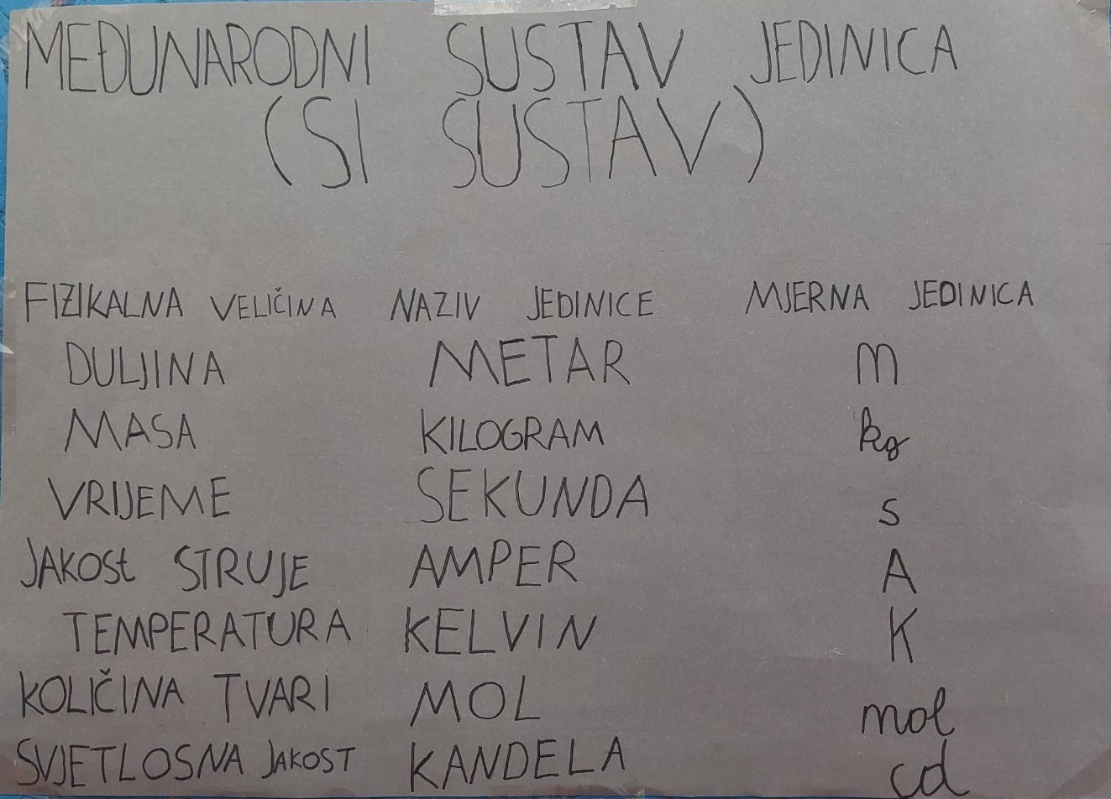 MEĐUNARODNI SUSTAV JEDINICA
(SI SUSTAV)
FIZIKALNA VELIČINA NAZIV JEDINICE MJERNA JEDINICA
DULJINA METAR m
MASA KILOGRAM kg
VRIJEME SEKUNDA s
JAKOSt STRUJE AMPER A
TEMPERATURA KELVIN K
KOLIČINA TVARI MOL mol
SVJETLOSNA JAKOST KANDELA cd